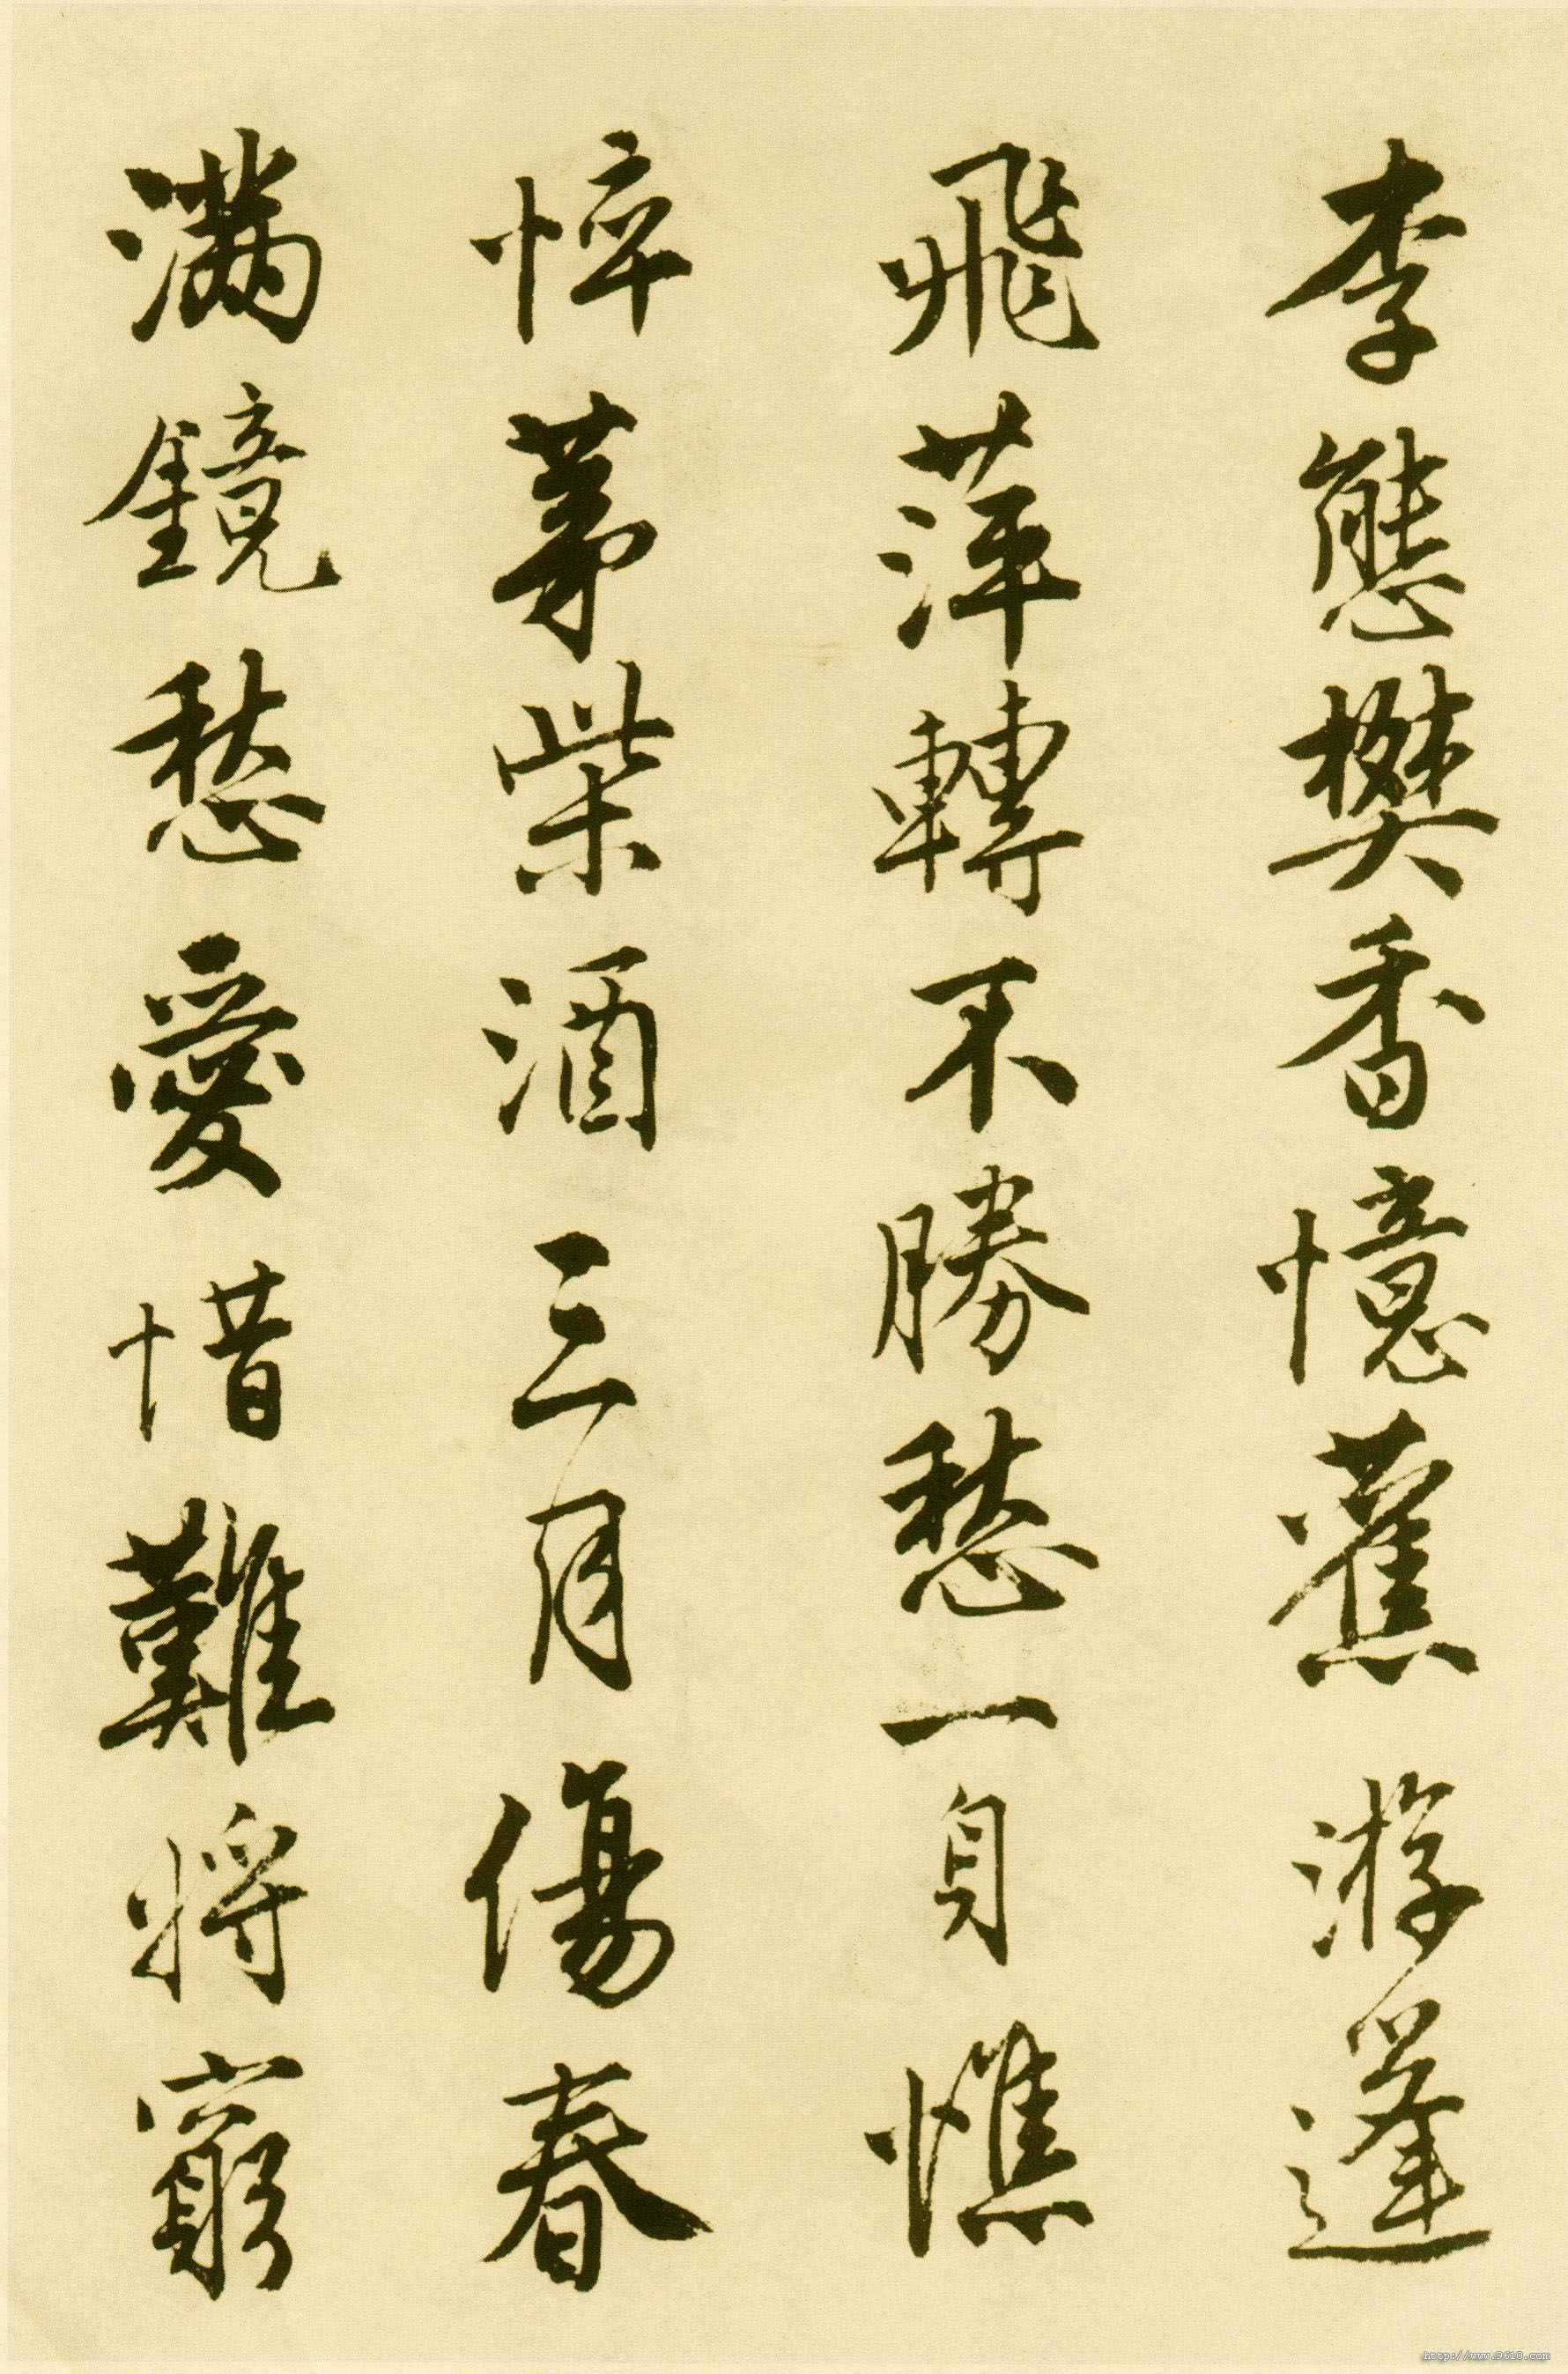 李態樊香憶舊游蓬
飛萍轉不勝愁一身憔
悴茅柴酒三月傷春
滿鏡愁愛惜難將窮
http://www.9610.com